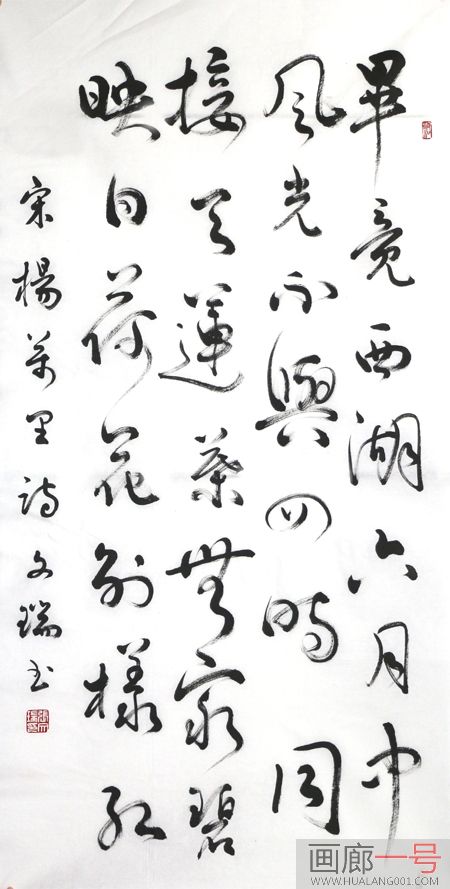 畢竟西湖六月中
風光不與四時同
接天蓮葉無窮碧
映日荷花別樣紅
宋楊萬里詩文瑞书
画廊一号
WWW.HUALANG001.COM